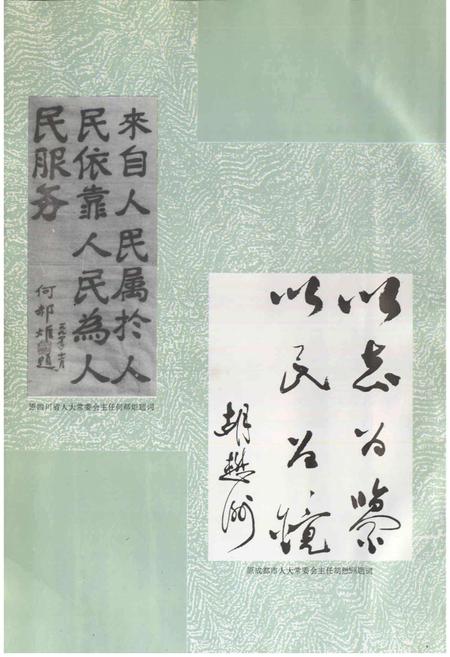 來自人民属於人
民依靠人民為人
民服务
何郝炬題
原四川省人大常委会主任何郝炬题词
以志为鉴
以民为镜
胡懋洲
原成都市人大常委会主任胡懋洲题词